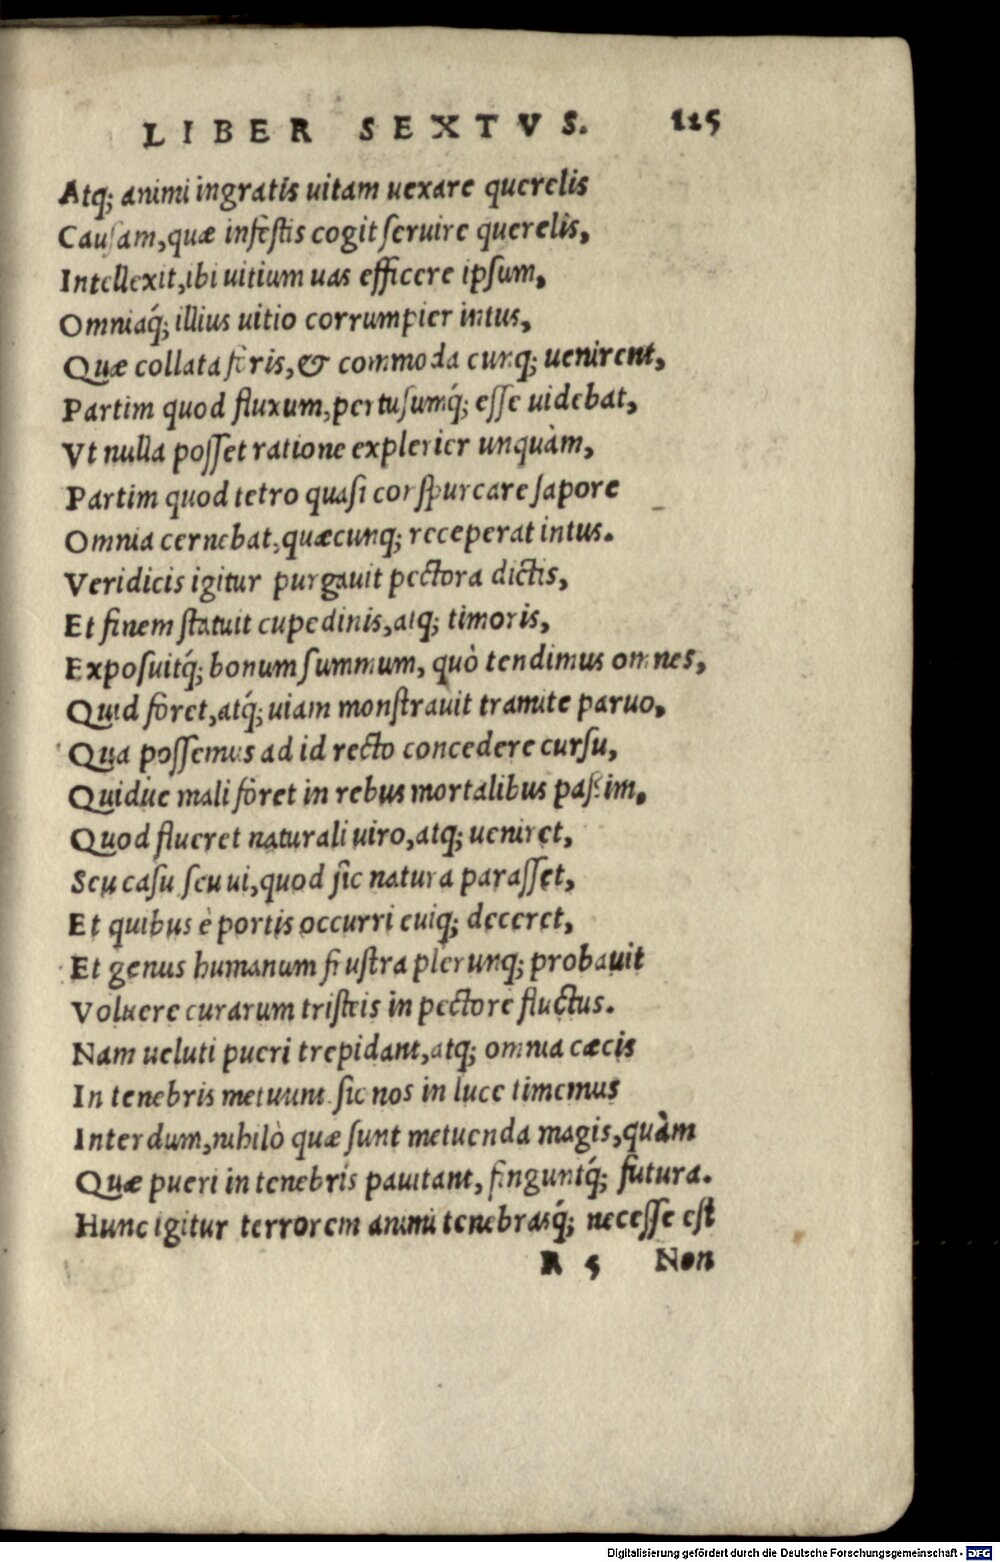 LIBER SEXTVS. 125
Atq; animi ingratis uitam uexare querelis
Causam, quæ infestis cogit seruire querelis,
Intellexit, ibi uitium uas efficere ipsum,
Omniaq́; illius uitio corrumpier intus,
Quæ collata foris, & commoda cunq; uenirent,
Partim quod fluxum, pertusumq́; esse uidebat,
Vt nulla posset ratione explerier unquàm,
Partim quod tetro quasi conspurcare sapore
Omnia cernebat, quæcunq; receperat intus.
Veridicis igitur purgauit pectora dictis,
Et finem statuit cupedinis, atq; timoris,
Exposuitq́; bonum summum, quò tendimus omnes,
Quid foret, atq́; uiam monstrauit tramite paruo,
Qua possemus ad id recto concedere cursu,
Quidúe mali foret in rebus mortalibus passim,
Quod flueret naturali uiro, atq; ueniret,
Seu casu seu ui, quod sic natura parasset,
Et quibus è portis occurri cuiq; deceret,
Et genus humanum frustra plerunq; probauit
Voluere curarum tristeis in pectore fluctus.
Nam ueluti pueri trepidant, atq; omnia cæcis
In tenebris metuunt sic nos in luce timemus
Interdum, nihilò quæ sunt metuenda magis, quàm
Quæ pueri in tenebris pauitant, finguntq́; futura.
Hunc igitur terrorem animi tenebrasq́; necesse est
R 5 Non
Digitalisierung gefördert durch die Deutsche Forschungsgemeinschaft - DFG